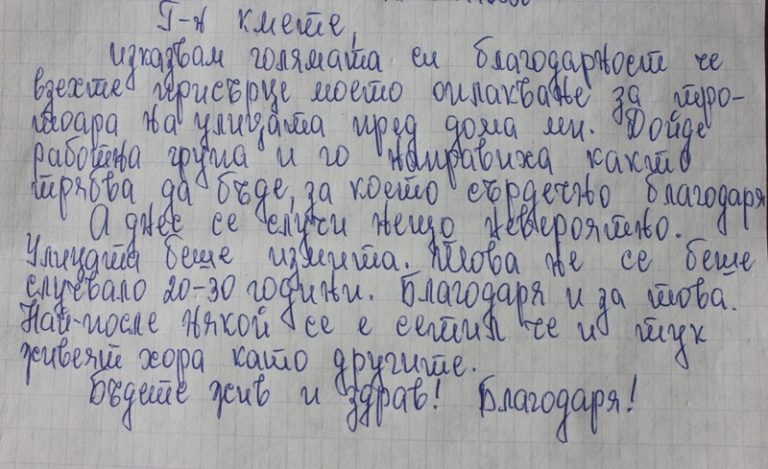 Г-н кмете,
изказвам голямата си благодарност че
взехте присърце моето оплакване за тро-
тоара на улицата пред дома ми. Дойде
работна група и го направиха както
трябва да бъде, за което сърдечно благодаря
А днес се случи нещо невероятно.
Улицата беше измита. Това не се беше
случвало 20-30 години. Благодаря и за това.
Най-после някой се е сетил че и тук
живеят хора като другите.
Бъдете жив и здрав! Благодаря!